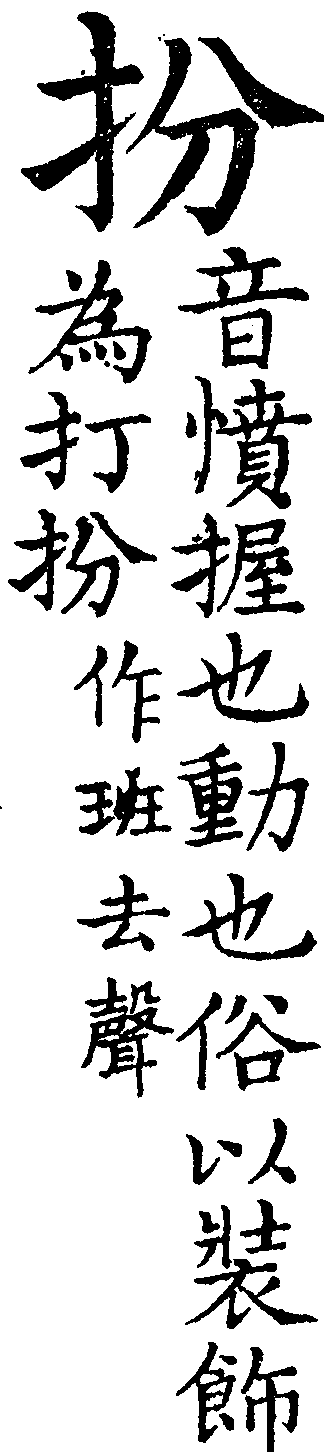 扮
音憤握也動也俗以裝飾
為打扮作班去聲